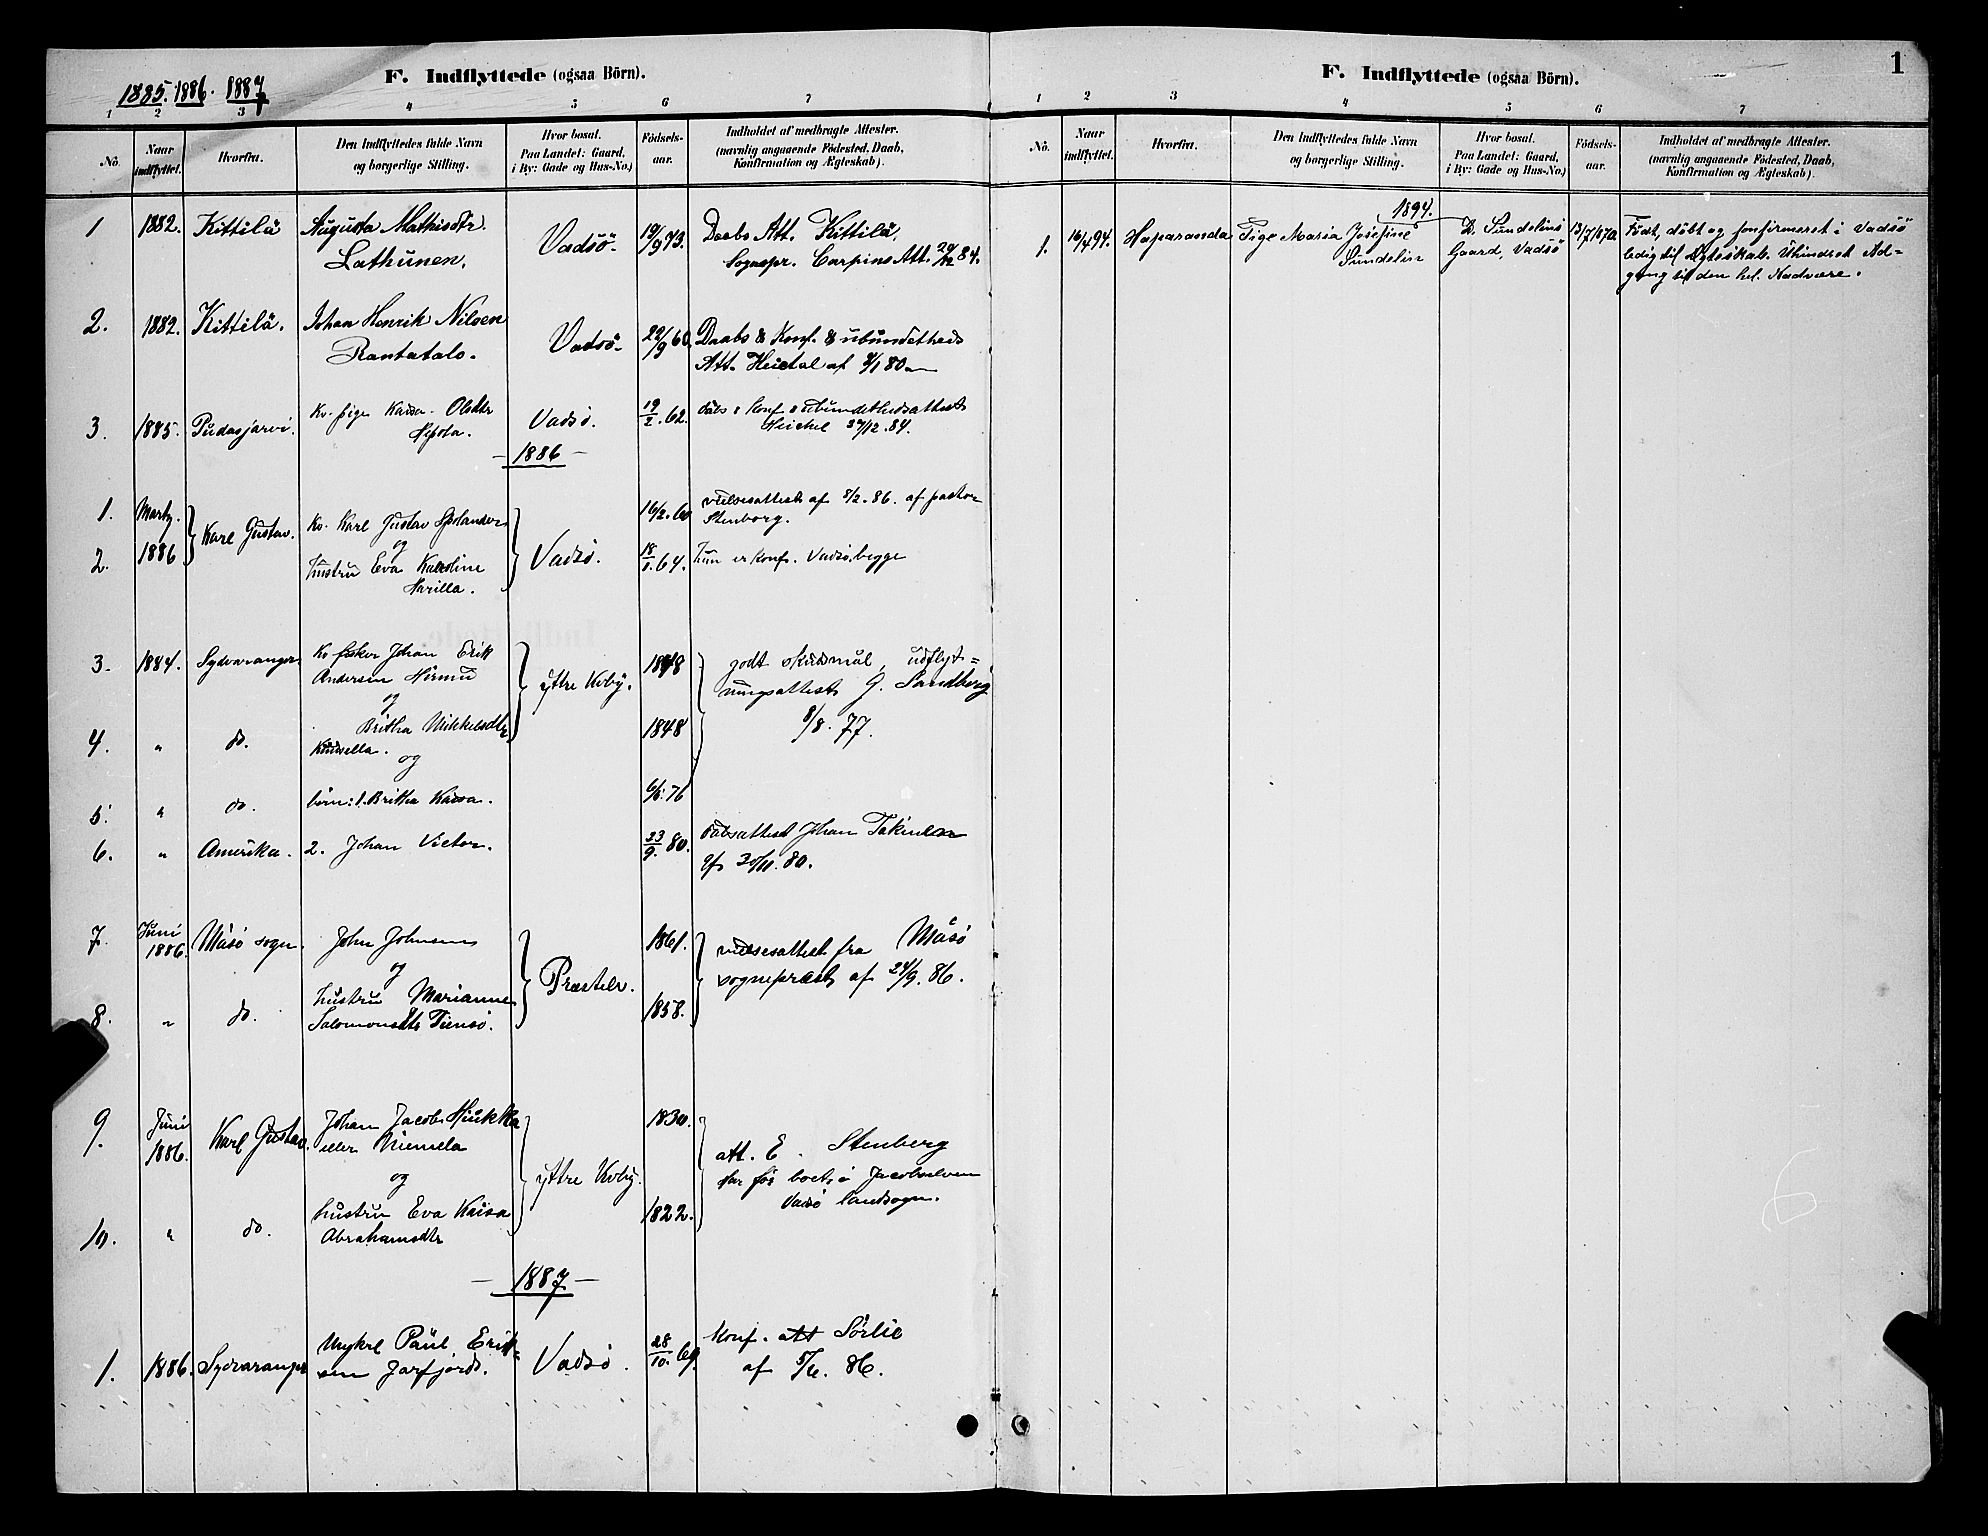 1885. 1886. 1887
F. Indflyttede (ogsaa Börn).
1 2 3 4 5 6 7
No.
Naar indflyttet.
Hvorfra.
Den Indflyttedes fulde Navn
og borgerlige Stilling.
Hvor bosat.
Paa Landet: Gaard,
i By: Gade og Hus-No.)
Födsels-
aar.
Indholdet af medbragte Attester.
(navnlig angaaende Födested, Daab,
Konfirmation og Ægteskab).
1 1882. Kittilä Augusta Mathisdtr. Vadsö. 19/9 73. Daabs Att. Kittilä.
Lathunen. Sognspr. Carpins Att. 84.
2. 1882. Kittilä. Johan Henrik Nilsen Vadsö. 22/9 60. Daabs & Konf. & ubundetheds
Rantatalo. Att. Heickel af 80
3. 1885. Pudasjarvi. Kv. pige Kaisa Olsdtr Vadsö. 19/2. 62. dåbs & konf & ubundethedsattest
Heickel /12. 84.
- 1886 -
1. Marts. Karl Gustav. Kv. Karl Gustav Vadsö. 16/2. 60 vielsesattest af 8/2. 86. af pastor
Stenborg.
og
2. 1886 hustru Eva Karoline 18/1. 64. hun er konf. Vadsö. begge
Harilla.
3. 1884. Sydvaranger Kv fisker Johan Erik yttre Kvby. 1848 godt skudsmål, udflyt=
Andersen ningsattest G. Sandberg
og 8/8. 77.
4. " do. Britha Mikkelsdtr 1848
og
5. " do. börn: 1. Britha Kaisa. 76
6. " Amerika. 2. Johan Victor. 23/9. 80. dåbsattest Johan
af 30/11. 80.
7. Juni 1886. Måsö sogn. John Johnsen Præstelv. 1861. vielsesattest fra Måsö
og sognepræst af 24/9. 86.
8. " do. hustru Marianne 1858.
Salomonsdtr
9. Juni 1886. Karl Gustav. Johan Jacob yttre Kvby. 1830. att. E. Stenberg
eller Niemela har för boet i Jacobselven
og Vadsö landsogn.
10. " do. hustru Eva Kaisa 1822.
Abrahamsdtr
- 1887 -
1. 1886. Sydvaranger Ungkrl Paul Erik= Vadsö. 28/10. 69. Konf. att Sörlie
sen Jarfjord. af 86.
1
F. Indflyttede (ogsaa Börn).
1 2 3 4 5 6 7
No.
Naar
indflyttet.
Hvorfra.
Den Indflyttedes fulde Navn
og borgerlige Stilling.
Hvor bosat.
Paa Landet: Gaard,
i By: Gade og Hus-No.)
Födsels-
aar.
Indholdet af medbragte Attester.
(navnlig angaaende Födested, Daab,
Konfirmation og Ægteskab).
1894.
1. 16/4 94. Haparanda Pige Maria Josefine Sundelins 13/7 1870. Födt, döbt og konfirmeret i Vadsö
Sundelin Gaard, Vadsö ledig til Ægteskab. Uhindret Ad=
gang til den hel. Nadvere.